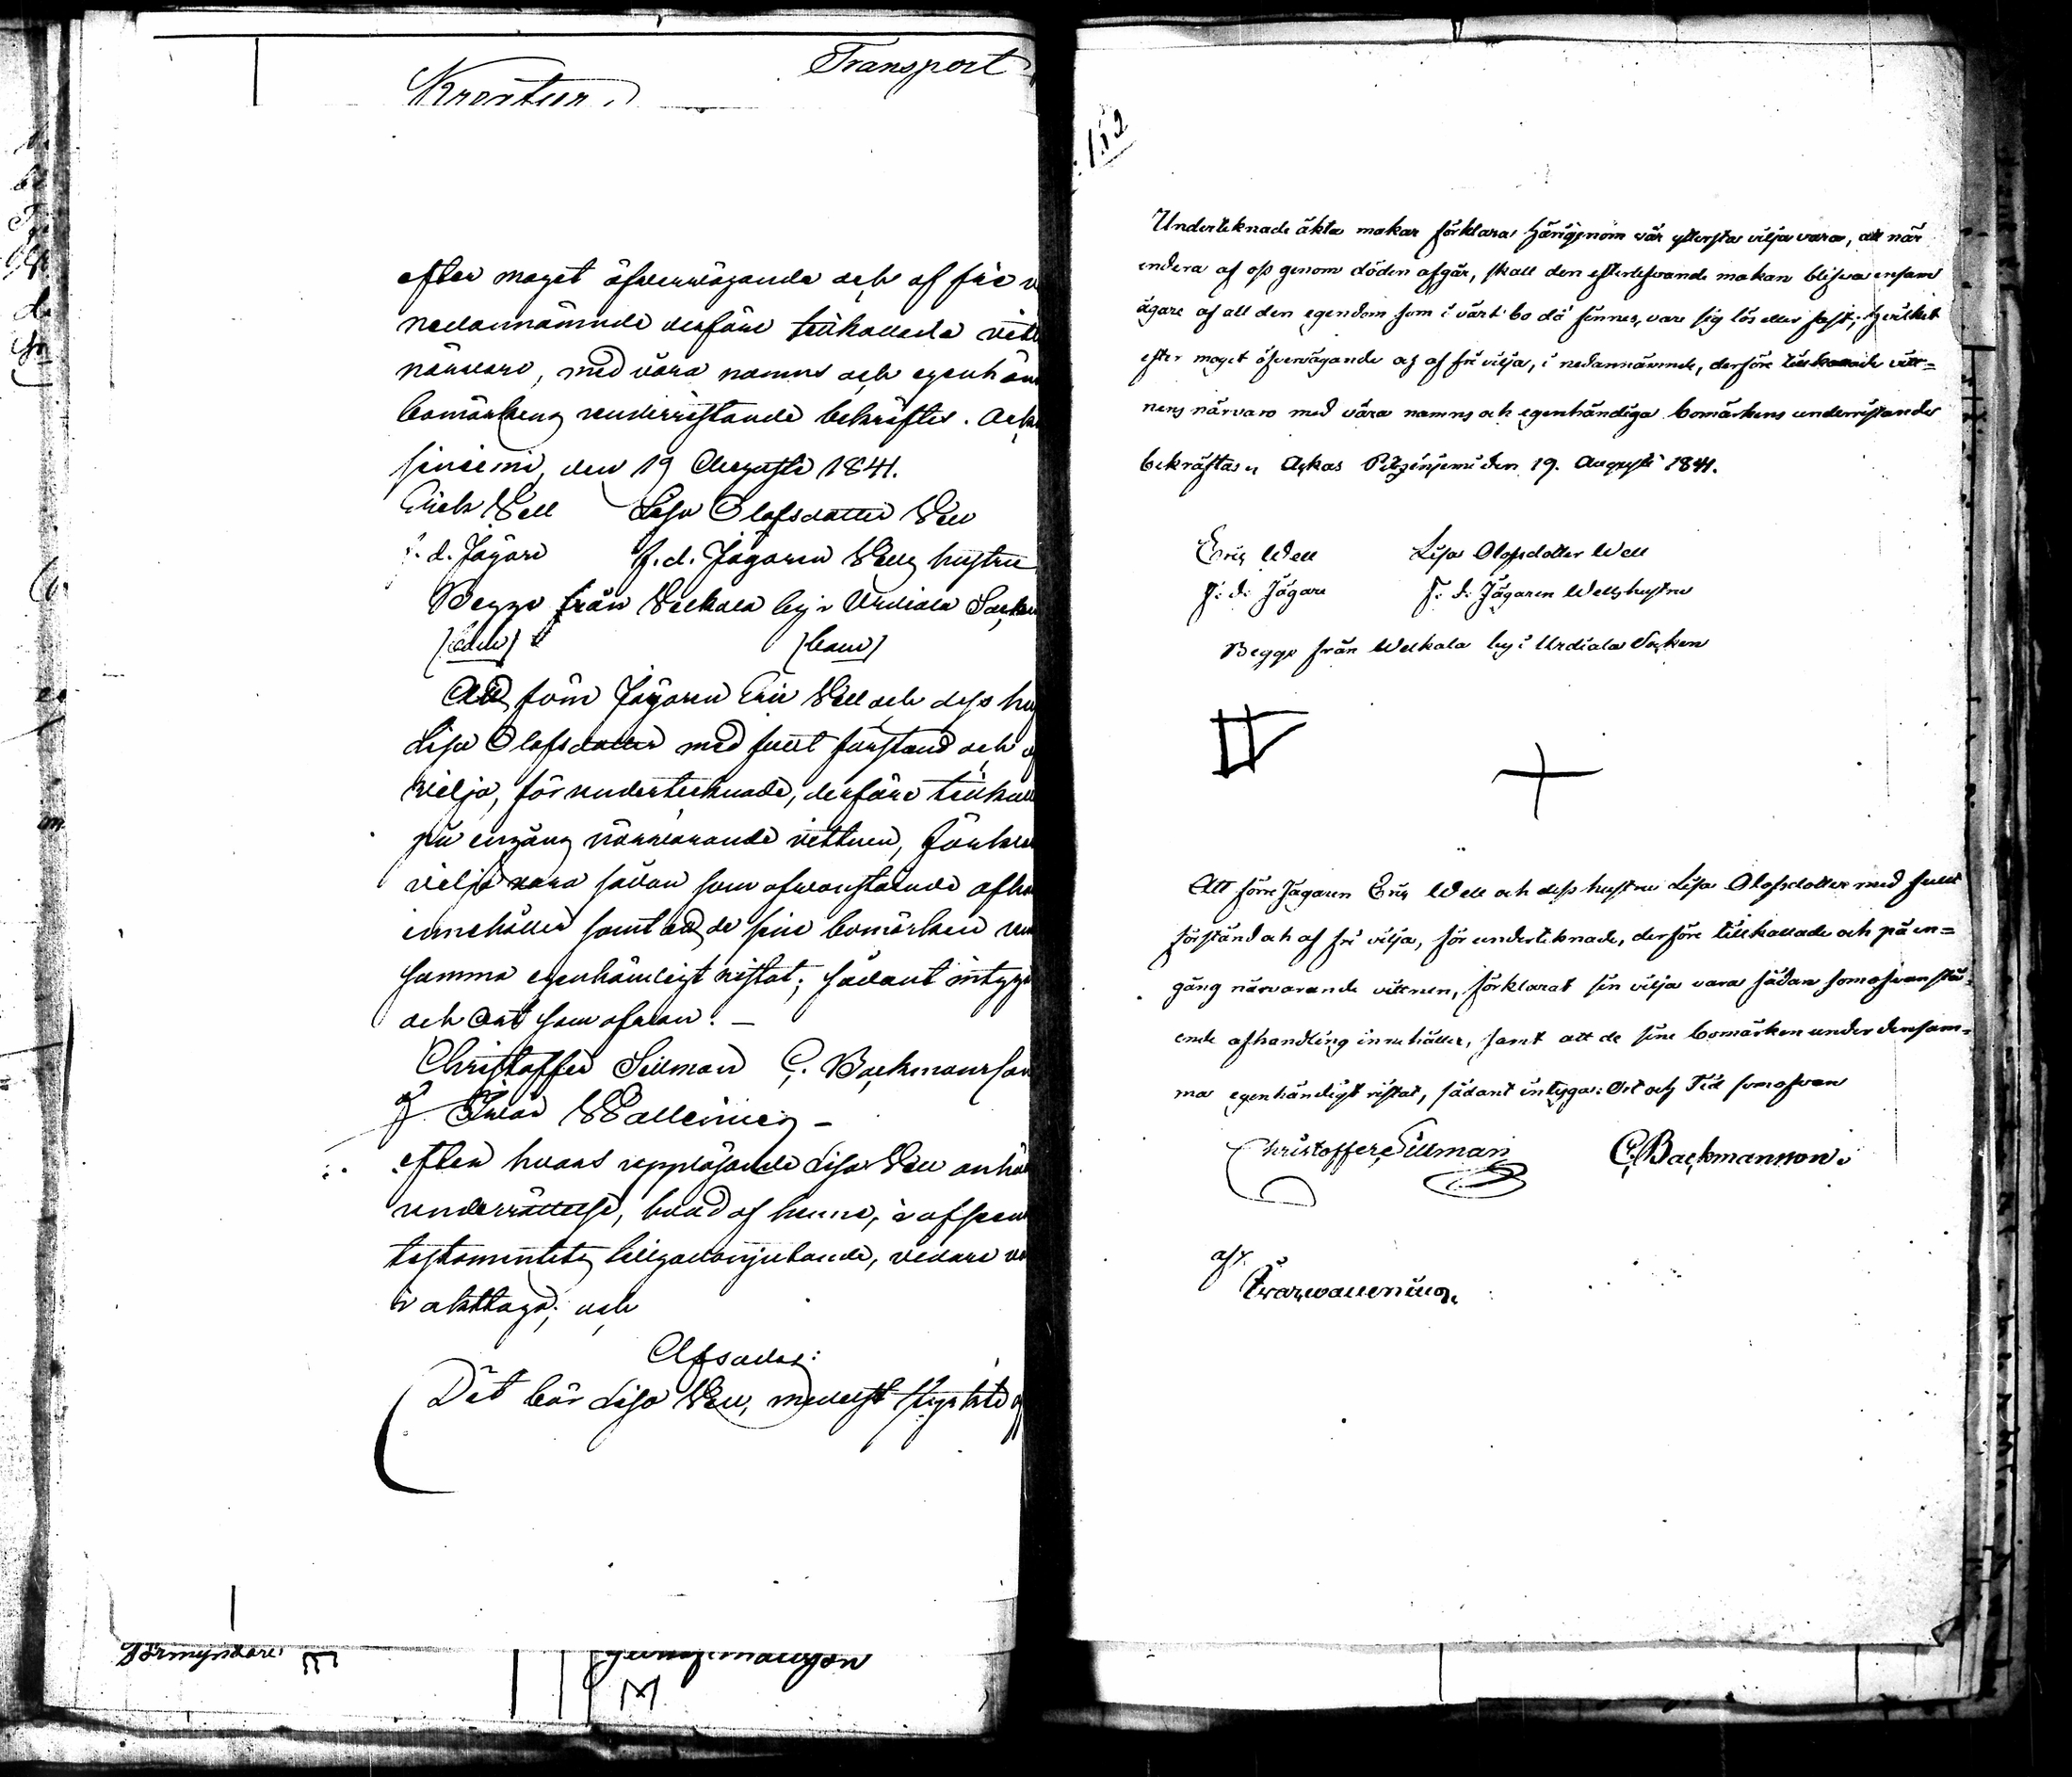 Transport
efter moget öfverwägande och af fri
nedannämnde derföre tillkallade
närvaro, med våra namns och egenhän
bomärkens underristande bekräftes.
siniemi, den 19 Augusti 1841.
Erich Well Lisa Olofsdotter Well
f. d. Jägare f. d. Jägaren Wells hustru
Begge från Welkala by i Urdiala Socken
Att förre Jägaren Eric Well och dess
Lisa Olofsdotter med fullt förstånd och
vilja, för undertecknade, derföre
på engång närvarande vittnen,
vilja vara sådan som ofvanstående
innehåller samt att de sine bomärken
samma egenhändigt ristat; sådant intyga
och Ort som ofvan. —
Christoffer Sillman C. Backmansson
Ivar Wallenius —
efter hvars uppläsande Lisa Well
underrättelse, hvad af henne, i afseende
testamentets tillgodonjutande, vidare
i akttaga; och
Afsades:
Det bör Lisa Well, medelst
Förmyndare
153
Underteknade äkta makar förklara härigenom vår yttersta vilja vara, att när
endera af oss genom döden afgår, skall den efterlefvande makan blifva ensam
ägare af all den egendom som i vårt bo då finnes, vare sig lös eller fast; hvilket
efter moget öfvervägande och af fri vilja, i nedannämnde, derföre tillkallade vitt=
nens närvaro med våra namns och egenhändiga bomärkens underristande
bekräftas. Ackas den 19. Augusti 1841.
Eric Well Lisa Olofsdotter Well
F. d. Jägare F. d. Jägaren Wells hustru
Begge från Welkala by i Urdiala Socken
Att förre Jägaren Eric Well och dess hustru Lisa Olofsdotter med fullt
förstånd och af fri vilja, för underteknade, derföre tillkallade och på en=
gång närvarande vittnen, förklarat sin vilja vara sådan som ofvanstå=
ende afhandling innehåller, samt att de sine bomärken under densam=
ma egenhändigt ristat, sådant intyga: Ort och Tid som ofvan
Christoffer Sillman C. Backmansson.
Ivar Wallenius.